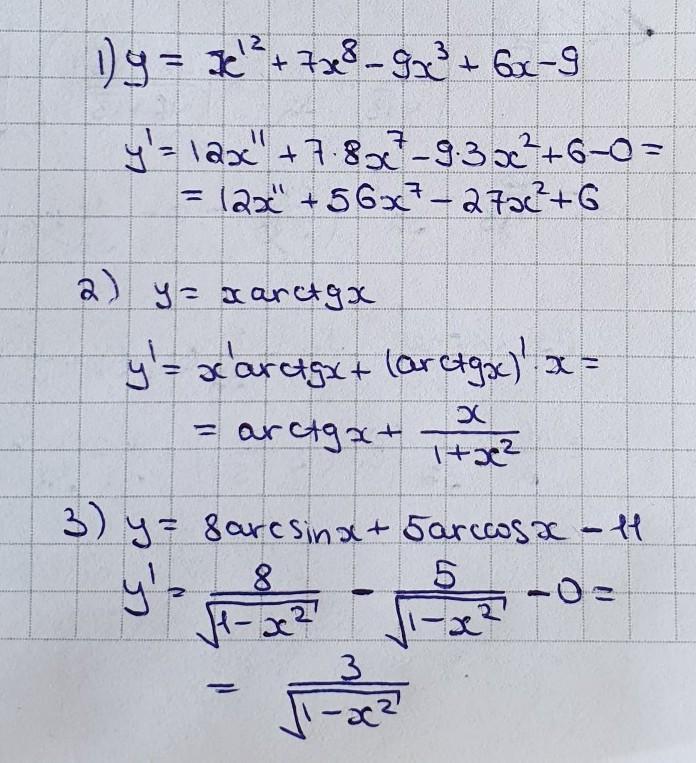 1) y = x¹² + 7x⁸ - 9x³ + 6x - 9
y' = 12x¹¹ + 7·8x⁷ - 9·3x² + 6 - 0 =
= 12x¹¹ + 56x⁷ - 27x² + 6
2) y = x arctgx
y' = x'arctgx + (arctgx)'·x =
= arctgx + x/(1+x²)
3) y = 8arcsinx + 5arccosx - 11
y' = 8/√(1-x²) - 5/√(1-x²) - 0 =
= 3/√(1-x²)